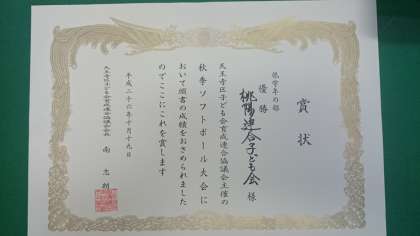 賞状
低学年の部
優勝
桃陽連合子ども会 様
天王寺区子ども会育成連合協議会主催の
秋季ソフトボール大会に
おいて頭書の成績をおさめられました
のでここにこれを賞します
平成二十六年十月十九日
天王寺区子ども会育成連合協議会会長
南